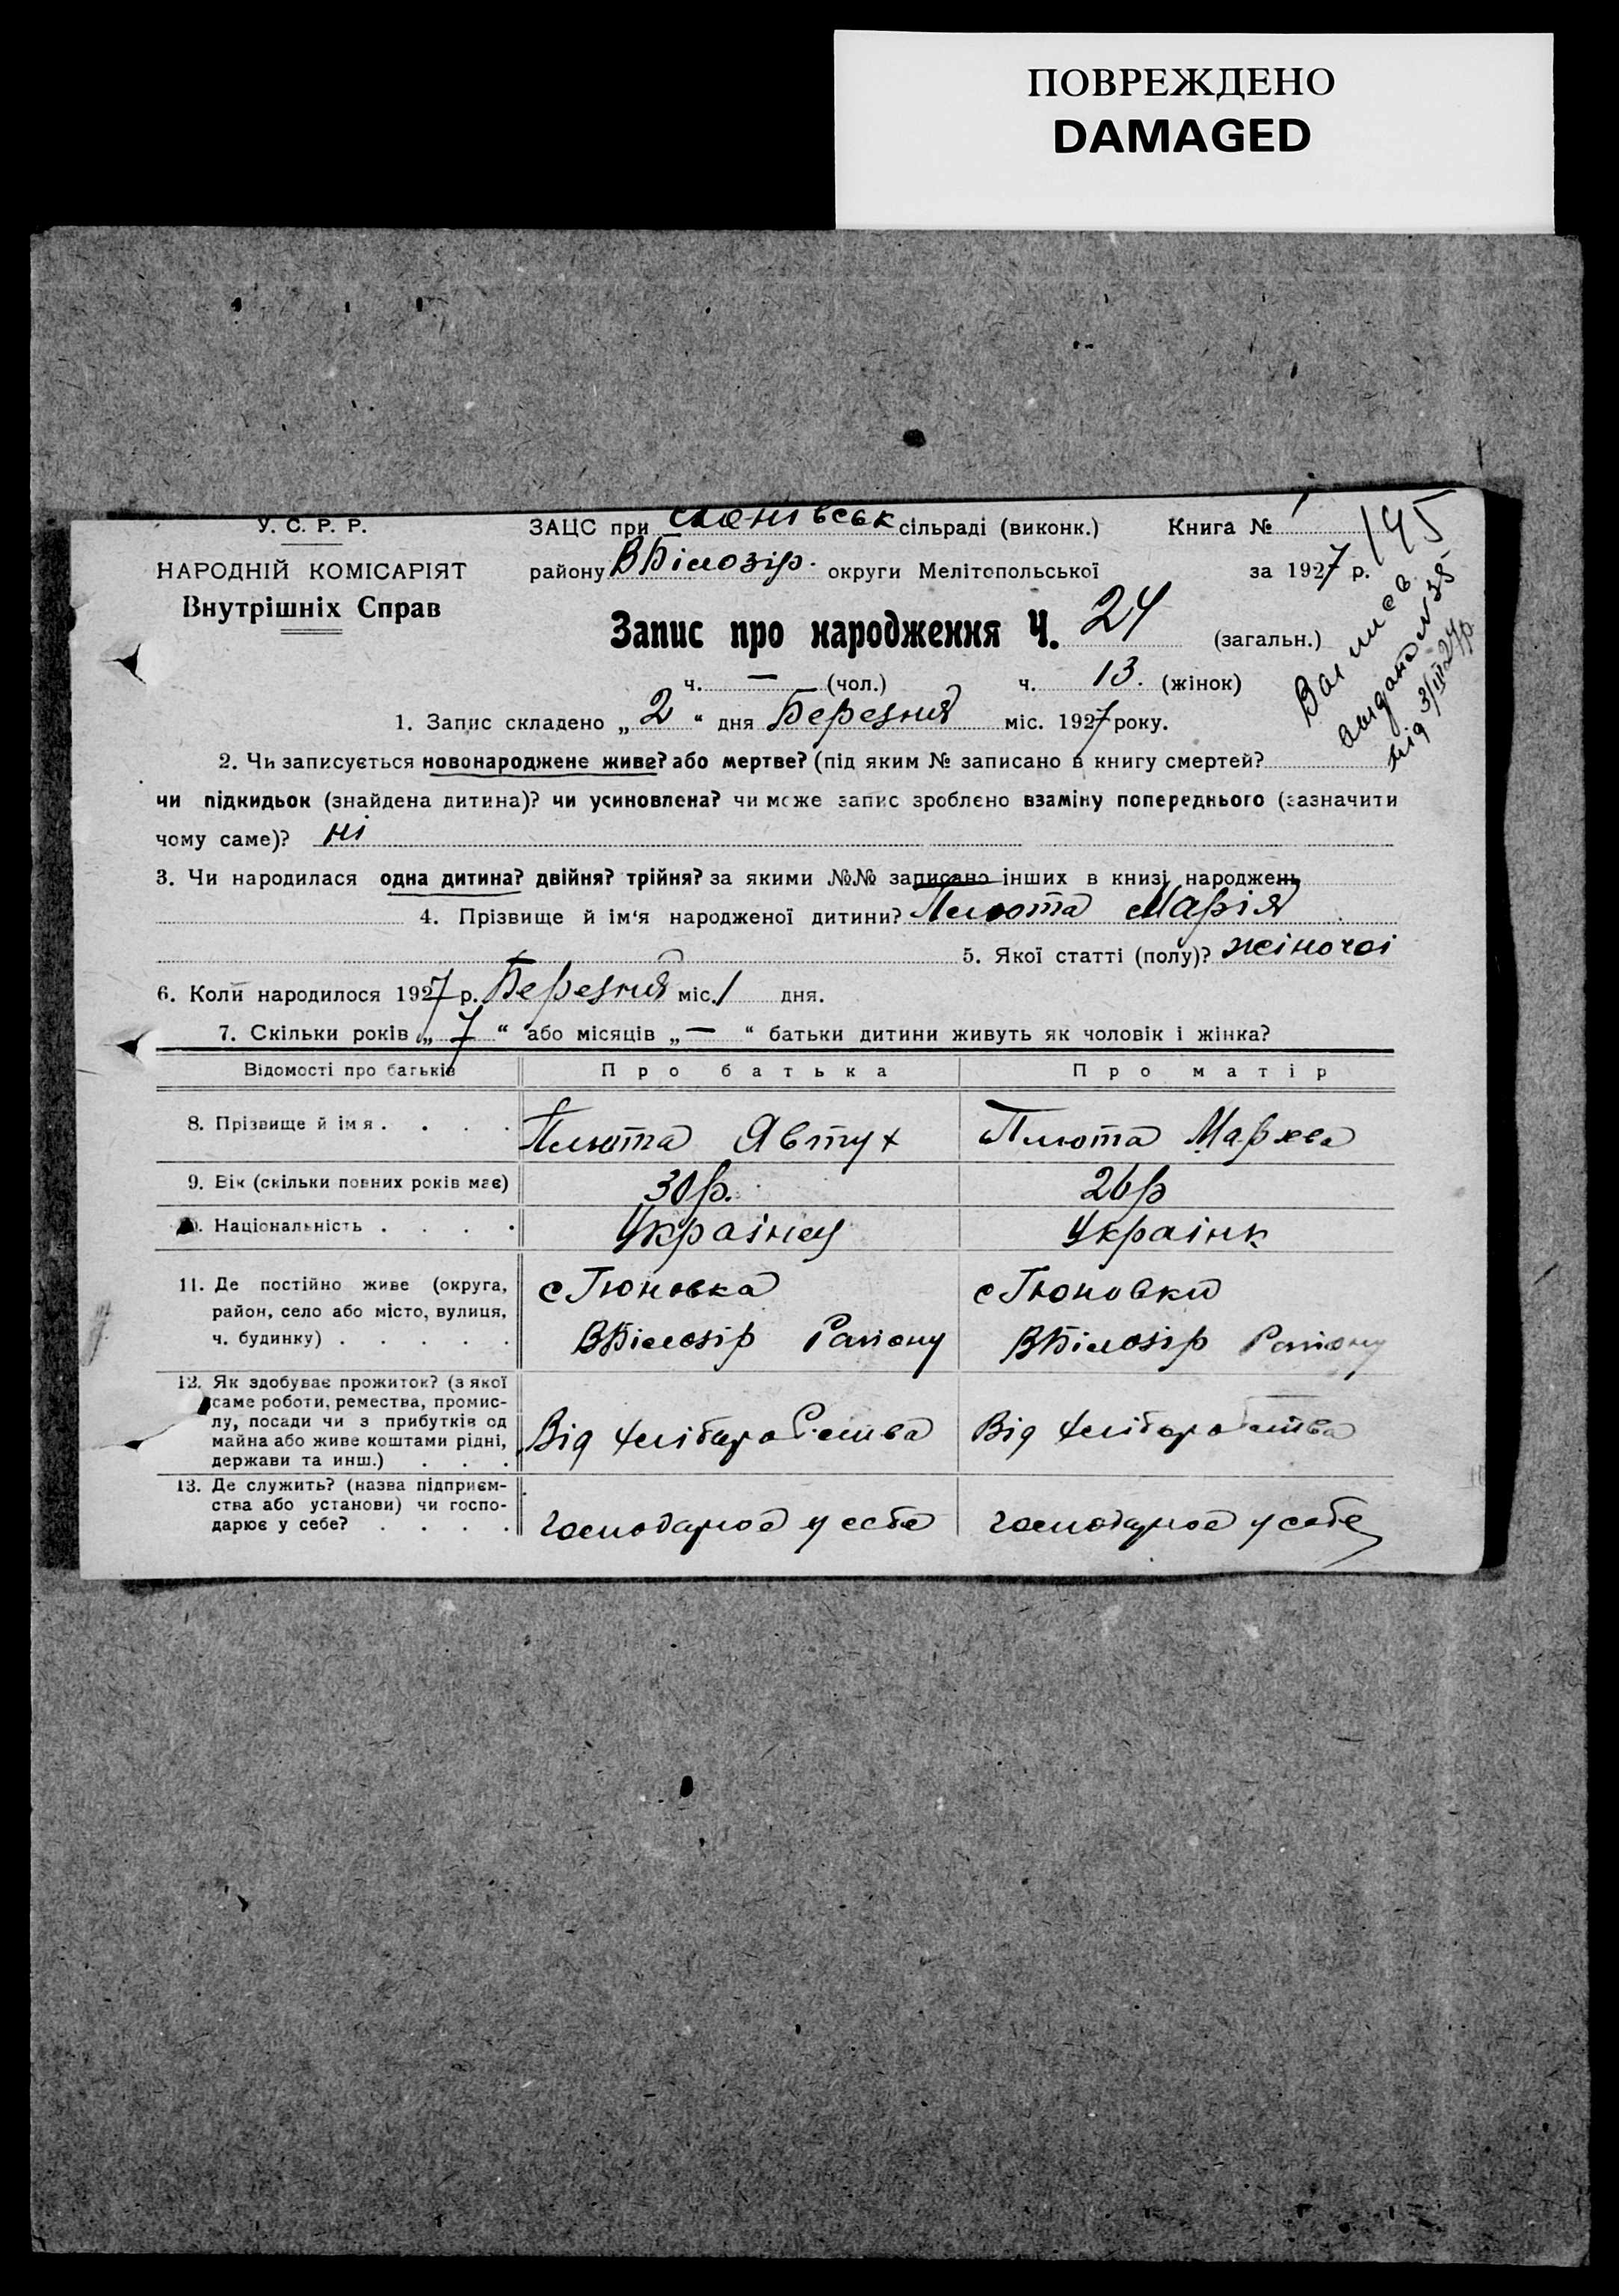 ПОВРЕЖДЕНО
DAMAGED
У. С. Р. Р.
НАРОДНІЙ КОМІСАРІЯТ
Внутрішніх Справ
ЗАЦС при сільраді (виконк.) Книга № 1
145
району ВБілозір. округи Мелітопольської за 1927 р.
Запис про народження Ч. 24 (загальн.)
ч. — (чол.) ч. 13. (жінок)
видано №38
від 3/III 27р.
1. Запис складено „2“ дня Березня міс. 1927 року.
2. Чи записується новонароджене живе? або мертве? (під яким № записано в книгу смертей?
чи підкидьок (знайдена дитина)? чи усиновлена? чи може запис зроблєно взаміну попереднього (зазначити
чому саме)? ні
3. Чи народилася одна дитина? двійня? трійня? за якими №№ записано інших в книзі народжень
4. Прізвище й ім'я народженої дитини? Плюта Марія
5. Якої статті (полу)? жіночоі
6. Коли народилося 1927 р. Березня міс. 1 дня.
7. Скільки років „7“ або місяців „—“ батьки дитини живуть як чоловік і жінка?
Відомості про батьків Про батька Про матір
8. Прізвище й імя . . . . Плюта Явтух Плюта
9. Вік (скільки повних років має) 30р. 26р
10. Національність . . . . Украінец Украінк
11. Де постійно живе (округа, с Тюновка с Тюновка
район, село або місто, вулиця,
ч. будинку) . . . . . ВБілозір Району ВБілозір Району
12. Як здобуває прожиток? (з якої
саме роботи, ремества, промис-
лу, посади чи з прибутків од Від Від
майна або живе коштами рідні,
держави та инш.) . . .
13. Де служить? (назва підприєм-
ства або установи) чи госпо-
дарює у себе? . . . . господарює у себе господарює у себе